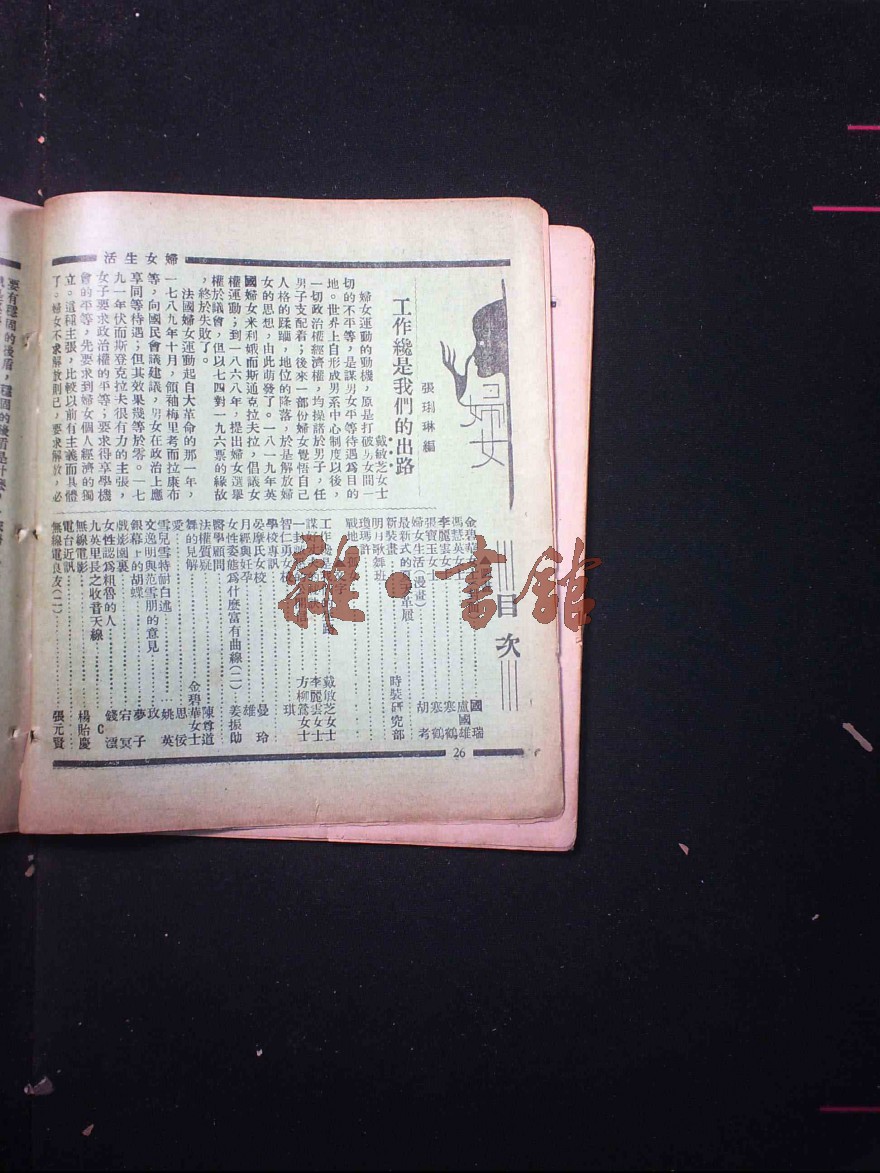 婦女生活
婦女
張琍琳編
工作纔是我們的出路
戴敏芝女士
婦女運動的動機，原是打破男女間一
切的不平等，是謀男女平等待遇為目的
地。世界上自形成男系中心制度以後，
一切政治權經濟權，均操諸於男子，任
男子支配着；後來一部份婦女覺悟自己
人格的蹂躪，地位的降落，於是解放婦
女的思想，由此萌發了。一八一九年英
國婦女米利娥而斯通克拉夫拉，倡議女
權運動；到一八六八年，提出婦女選舉
權於議會，但以七四對一九六票的緣故
，終於失敗了。
法國婦女運動起自大革命的那一年，
一七八九年十月，領袖梅里考而拉康布
等，向國民會議建議，男女在政治上應
享同等待遇；但其效果幾等於零。一七
九一年伏而斯登克拉夫很有力的主張，
女子要求政治權的平等；要求得享學機
會的平等，先要求到婦女個人經濟的獨
立。這種主張，比較以前有主義而具體
了。婦女不求解放則已，要求解放，必
目次
金碧華女士 國瑞
馮慧英女士 盧國雄
李麗雲女士 寒鶴
張寶玉女士 寒鶴
婦女生活（漫畫） 胡考
最新式的 展
新裝畫 時裝研究部
明月歌舞班
瓊瑪許
戰地
工作 路 戴敏芝女士
謀 李麗雲女士
一封 方柳鶯女士
智仁勇女校 琪
學校專訊
晏摩氏女校 曼玲
月經與妊孕 雄
女性姿態為什麼富有曲線（二） 姜振勛
醫學顧問
法權質疑 陳尊道
舞的見解 金碧華女士
愛 思佞
雪兒雪特耐自述 姚英
文逸明與范雪朋的意見 玫
銀幕上的胡蝶 夢子
戲影園裏 宕冥
女性認為粗魯的人 錢
九英里長之收音天線 C
無線電影 楊貽慶
電台近訊
無線電良友（二） 張元賢
26
要有穩固的後盾，穩固的後盾是什麼，
雜·書館